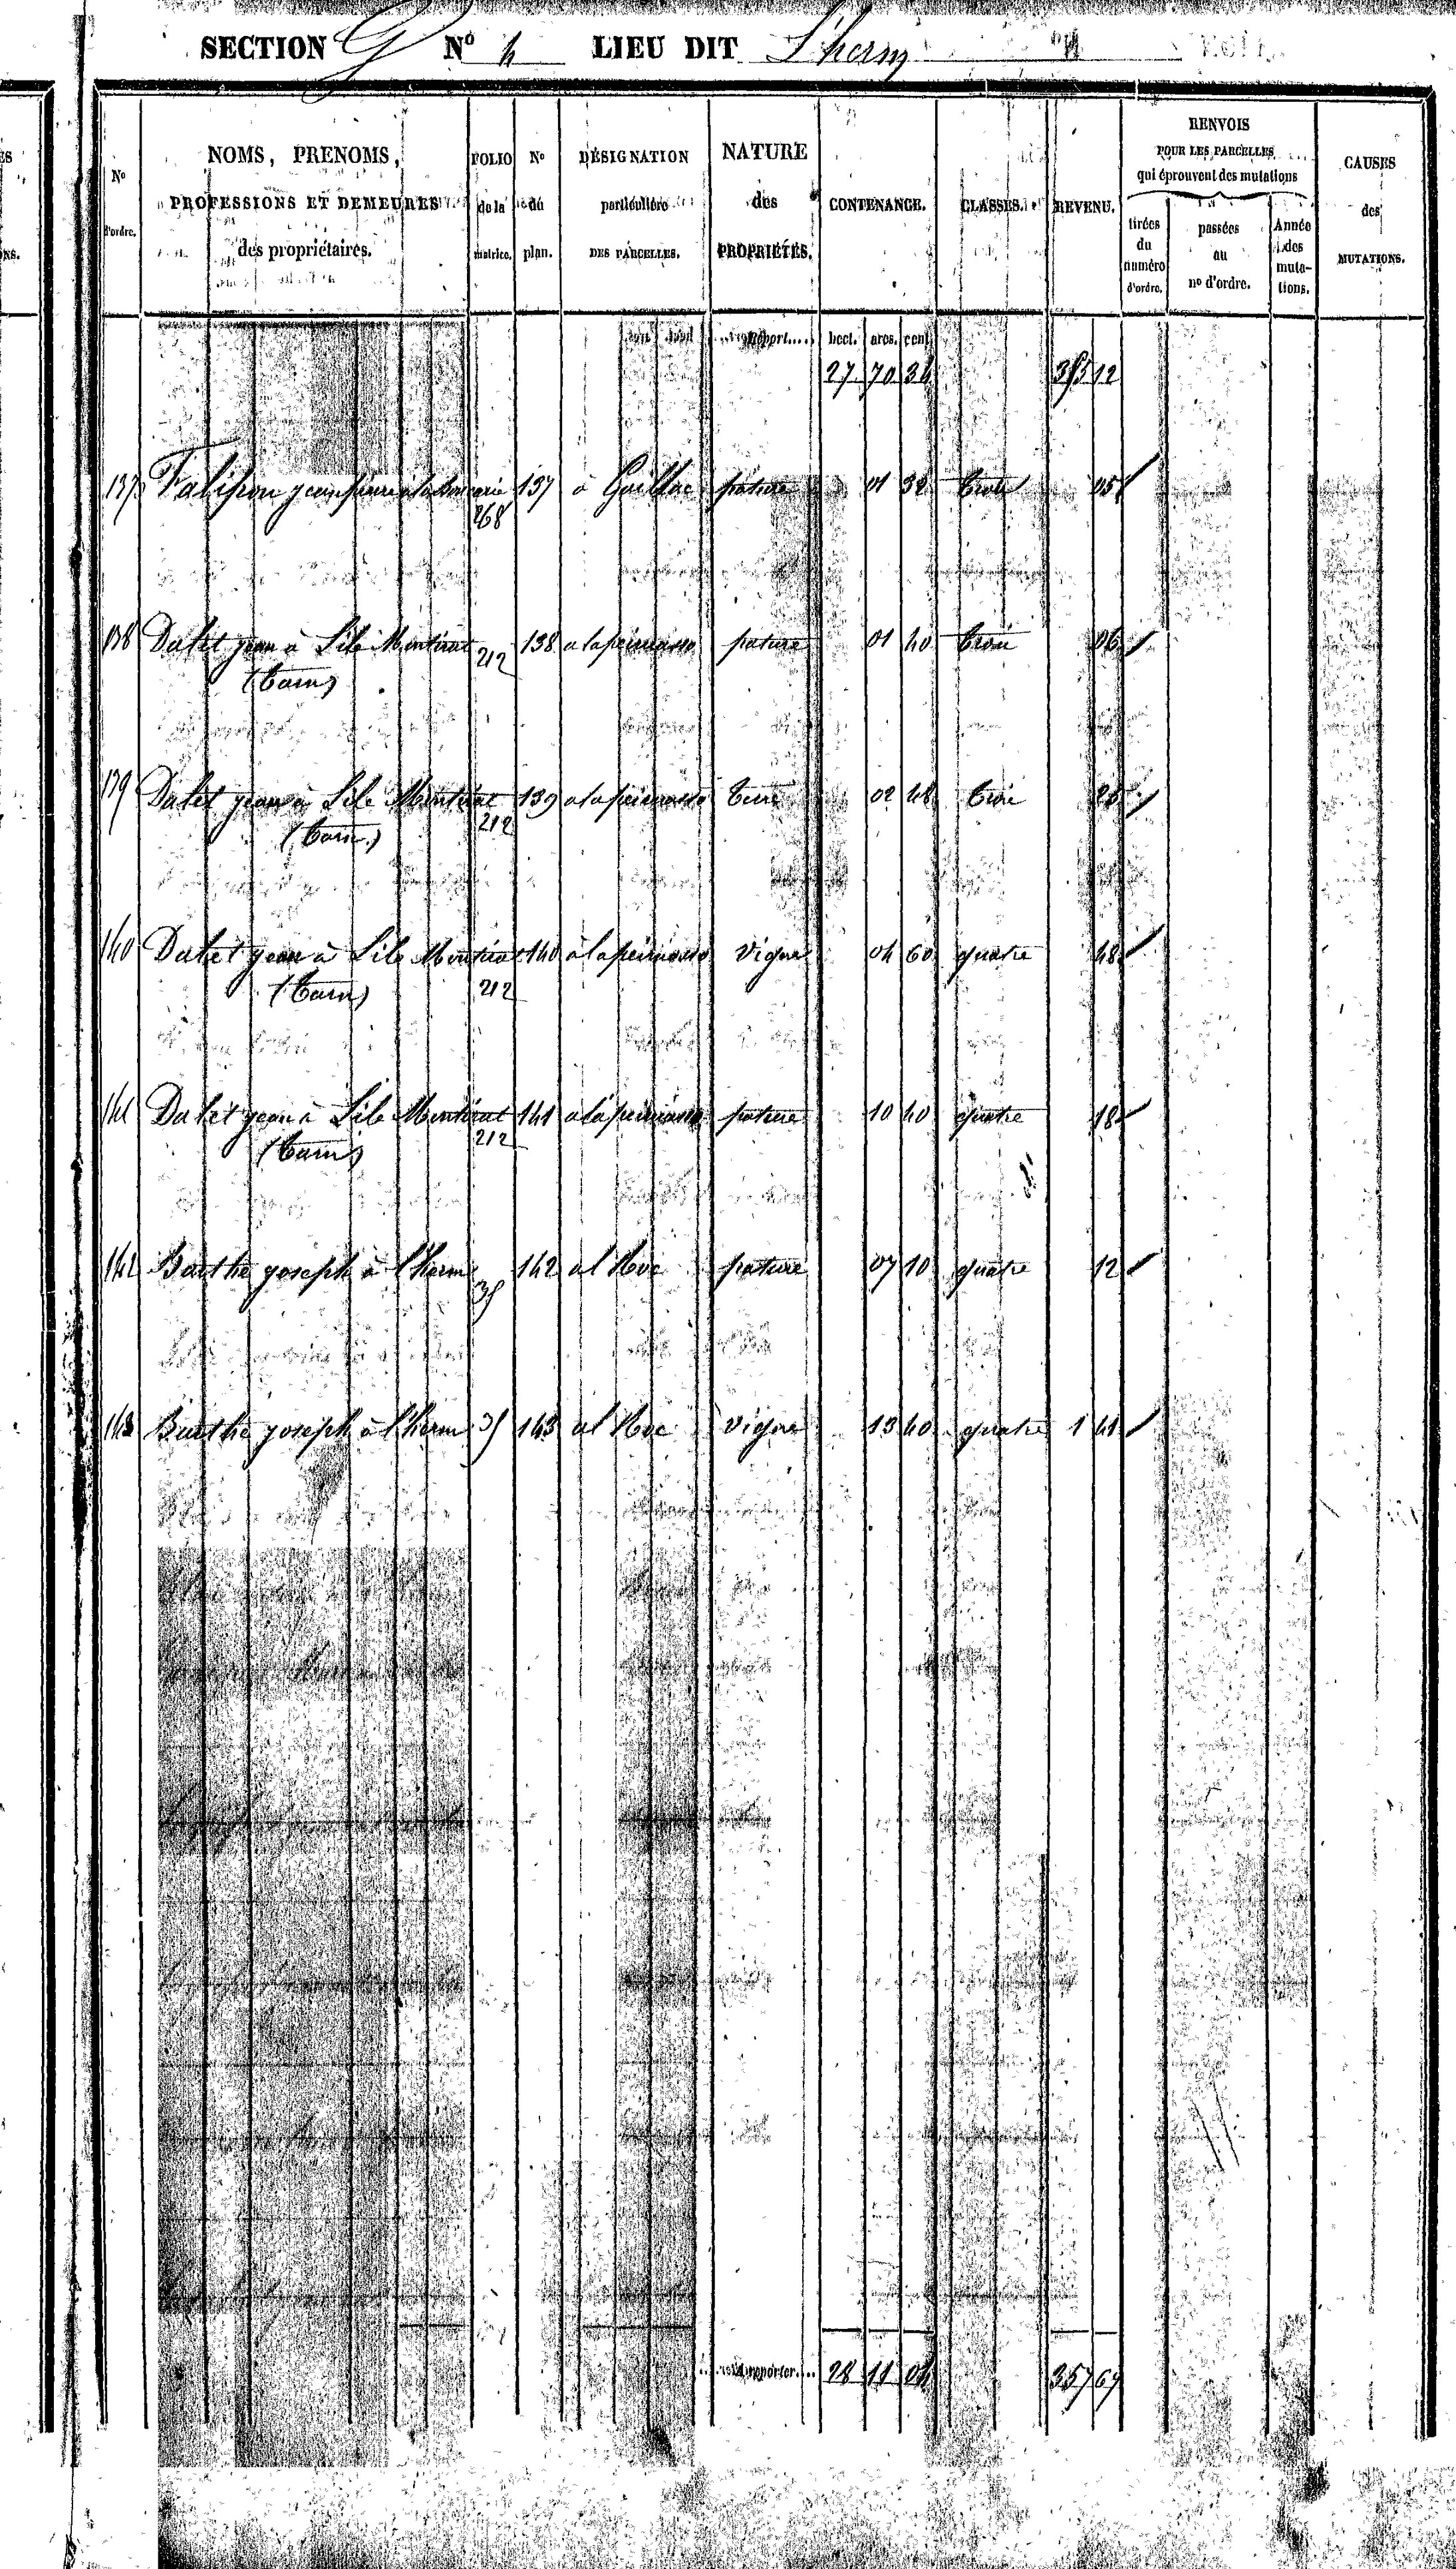 SECTION G No 4 LIEU DIT L'herm
No d'ordre.
NOMS, PRENOMS,
PROFESSIONS ET DEMEURES
des propriétaires.
FOLIO de la matrice.
No du plan.
DÉSIGNATION
particulière
DES PARCELLES.
NATURE
des
PROPRIÉTÉS.
CONTENANCE.
CLASSES.
REVENU.
RENVOIS
POUR LES PARCELLES
qui éprouvent des mutations
tirées du numéro d'ordre.
passées au no d'ordre.
Année des mutations.
CAUSES
des
MUTATIONS.
Report.... hect. ares. cent.
27 70 34 12
137 jean pierre 137 à Gaillac pature 01 32 trois 05
268
138 Dalet jean à 138 pature 01 40 trois 06
212
(Tarn)
139 Dalet jean à 139 terre 02 48 trois
212
(Tarn)
140 Dalet jean à 140 vigne 04 60 quatre 48
(Tarn) 212
141 Dalet jean à 141 pature 10 40 quatre 18
212
(Tarn)
142 Barthe joseph à l'herm 142 al Roc pature 07 10 quatre 12
143 Barthe joseph à l'herm 143 al Roc vigne 13 40 quatre 1 41
A reporter.... 28 11 04 357 67